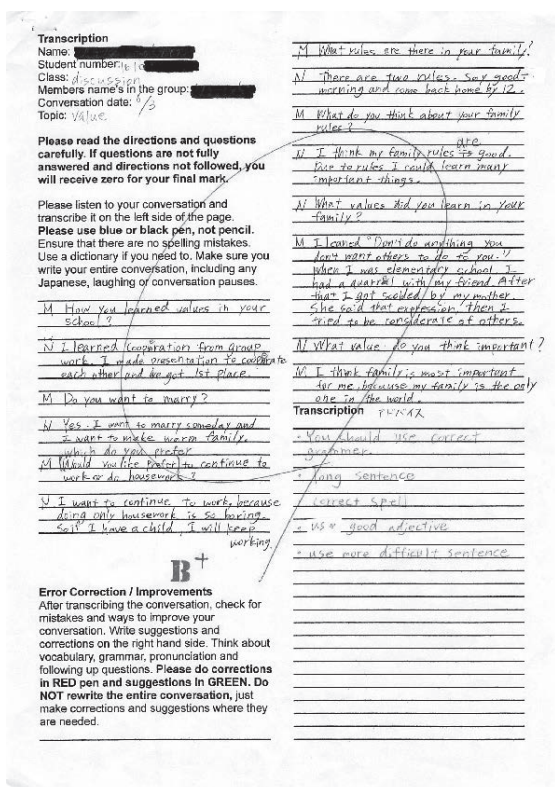 Transcription
Name:
Student number: 1610
Class: discussion
Members name's in the group:
Conversation date: 6/3
Topic: value
Please read the directions and questions
carefully. If questions are not fully
answered and directions not followed, you
will receive zero for your final mark.
Please listen to your conversation and
transcribe it on the left side of the page.
Please use blue or black pen, not pencil.
Ensure that there are no spelling mistakes.
Use a dictionary if you need to. Make sure you
write your entire conversation, including any
Japanese, laughing or conversation pauses.
M How you learned values in your
school?
N I learned cooperation from group
work. I made presentation to cooperate
each other and we got 1st place.
M Do you want to marry?
N Yes. I want to marry someday and
I want to make warm family.
which do you prefer
M Would you like prefer to continue to
work or do housework?
N I want to continue to work, because
doing only housework is so boring.
So if I have a child, I will keep
working.
B+
Error Correction / Improvements
After transcribing the conversation, check for
mistakes and ways to improve your
conversation. Write suggestions and
corrections on the right hand side. Think about
vocabulary, grammar, pronunciation and
following up questions. Please do corrections
in RED pen and suggestions in GREEN. Do
NOT rewrite the entire conversation, just
make corrections and suggestions where they
are needed.
M What rules are there in your family?
N There are two rules. Say good-
morning and come back home by 12.
M What do you think about your family
rules?
are
N I think my family rules is good.
Due to rules I could learn many
important things.
N What values did you learn in your
family?
M I leaned "Don't do anything you
don't want others to do to you."
When I was elementary school I
had a quarrel with my friend. After
that I got scolded by my mother.
She said that expression, then I
tried to be considerate of others.
N What value do you think important?
M I think family is most important
for me because my family is the only
one in the world.
Transcription アドバイス
・You should use correct
grammer.
・long sentence
correct spell
・use good adjective
・use more difficult sentence